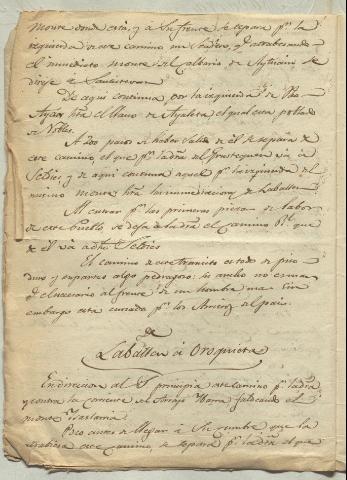 monte donde está, y á su frente se separa pr. la
izquierda de este camino un sendero, q. atrabesando
el inmediato monte del calbario de Aytuani se
dirije á Santesteban
De aqui continua por la izquierda del Rio
Aytaz pra. el llano de Ayaleta el qual esta poblado
de Robles.
A 200 pasos de haber salido de él se separa de
este camino, el que pr. la dra. del Frustequi va á
Saldias y de aqui continua aquel pr. la izquierda del
mismo monte hta. las inmediaciones de Labállen
Al entrar pr. las primeras piezas de labor
de este Pueblo, se deja á la dra. el camino Rl. que
de él va á dho. Saldias
El camino de este transito es todo de piso
duro y en partes algo pedragoso: su ancho no es mas
q. el necesario al frente de un hombre mas sin
embargo esta cursado pr. los Arrieros del pais.
de
Labállen á Oroquieta
En direccion al S. principia este camino pr. la dra.
y contra la corriente del Arroyo Ybarra faldeando el
monte
Poco antes de llegar á su cumbre, que la
atrabiesa este camino, se separa pr. la dra. el que